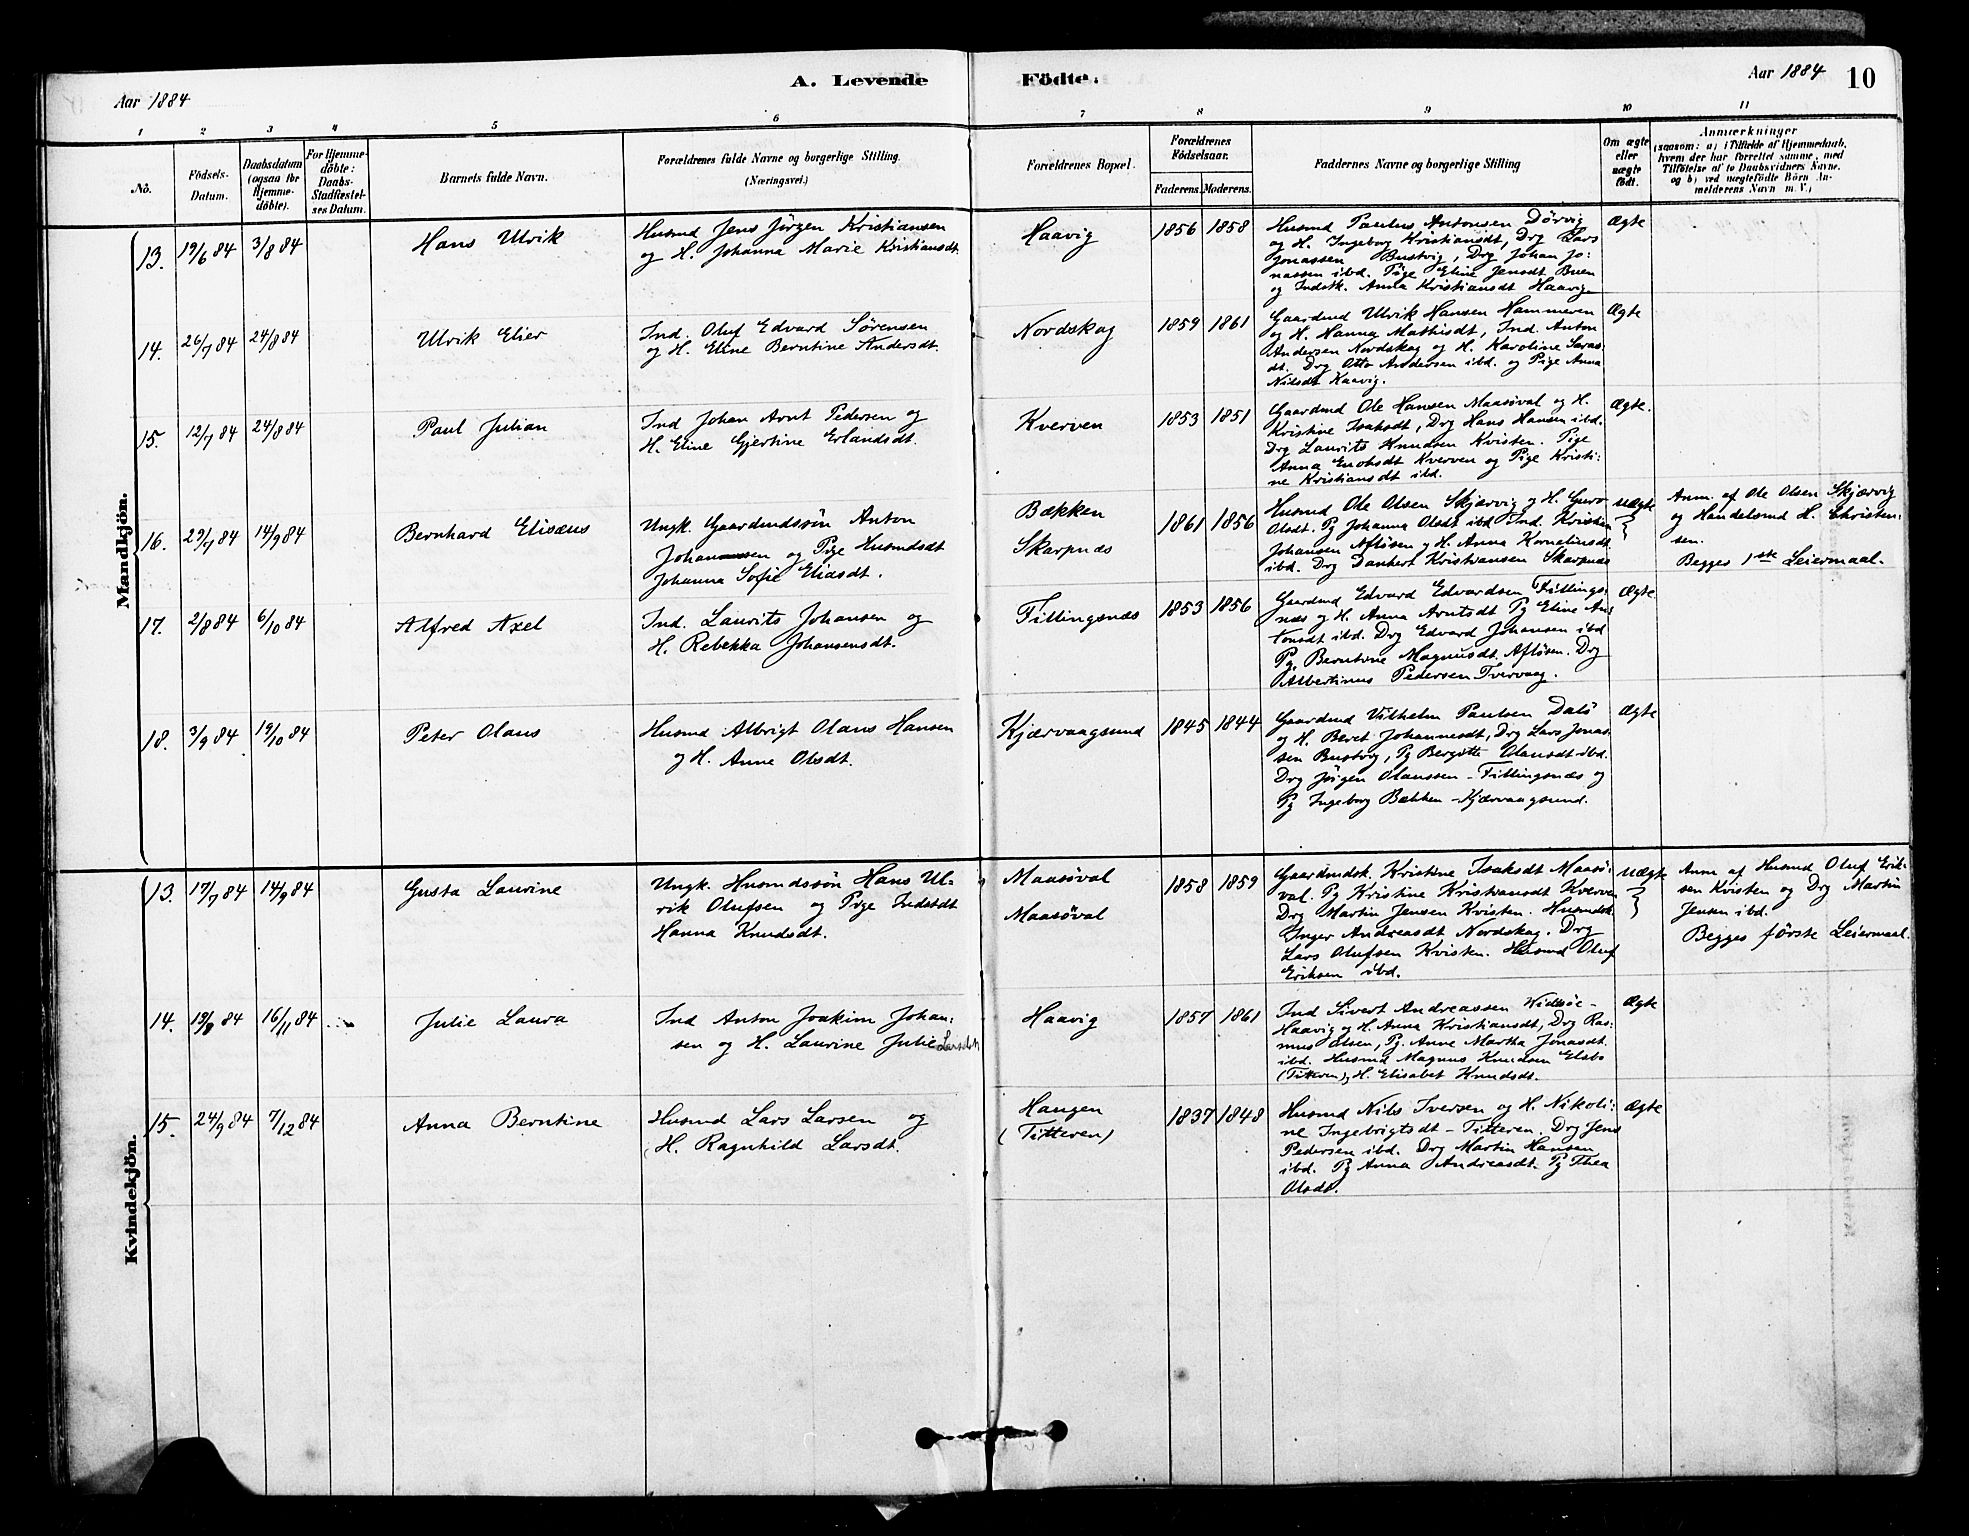 Aar 1884
A. Levende Födte.
Aar 1884 10
1 2 3 4 5 6 7 8 9 10 11
No.
Födsels-
Datum.
Daabsdatum
(ogsaa for
Hjemme-
döbte).
For Hjemme-
döbte:
Daabs-
Stadfæstel-
ses Datum.
Barnets fulde Navn.
Forældrenes fulde Navne og borgerlige Stilling.
(Næringsvei.)
Forældrenes Bopæl.
Forældrenes
Födselsaar.
Faderens. Moderens.
Faddernes Navne og borgerlige Stilling
Om ægte
eller
uægte
födt.
Anmærkninger
(saasom: a) i Tilfælde af Hjemmedaab,
hvem der har forrettet samme, med
Tilföielse af to Daabsvidners Navne,
og b) ved uægtefödte Börn An-
melderens Navn m. V.)
Mandkjön.
13. 19/6 84 3/8 84
Hans Ulrik
Husmd Jens Jörgen Kristiansen
og H. Johanna Marie Kristiansdt.
Haavig
1856 1858
Husmd Paulus Antonsen Dörvig
og H. Ingeborg Kristiansdt, Drg Lars
Jonassen Bustvig, Drg Johan Jo:
nassen ibd. Pige Eline Jensdt Buen
og Indstk. Anna Kristiansdt Haavig
Ægte
14. 26/7 84 24/8 84
Ulrik Elier
Ind. Oluf Edvard Sörensen
og H. Eline Berntine Andersdt.
Nordskag
1859 1861
Gaardmd Ulrik Hansen Hammeren
og H. Hanna Mathisdt, Ind. Anton
Andersen Nordskag og H. Karoline Laras:
dt. Drg Otto Andersen ibd. og Pige Anna
Nilsdt Haavig.
Ægte
15. 12/7 84 24/8 84
Paul Julian
Ind Johan Arnt Pedersen og
H. Eline Gjertine Erlandsdt.
Kverven
1853 1851
Gaardmd Ole Hansen Maasöval og H.
Kristine Isaksdt, Drg Hans Hansen ibd.
Drg Laurits Knudsen Kvisten. Pige
Anna Enoksdt Kverven og Pige Kristi:
ne Kristiansdt ibd.
Ægte.
16. 29/7 84 14/9 84
Bernhard Elisæus
Ungk. Gaardmdssön Anton
Johannesen og Pige Husmdsdt
Johanna Sofie Eliasdt.
Bækken
Skarpnæs
1861 1856
Husmd Ole Olsen Skjærvig og H. Guro
Olsdt. Pg Johanna Olsdt ibd Ind. Kristian
Johansen Aflösen og H. Anna Korneliusdt.
ibd. Drg Dankert Kristiansen Skarpnæs
uægte
Anm. af Ole Olsen Skjærvig
og Handelsmd H. Christen:
sen.
Begges 1ste Leiermaal.
17. 2/8 84 6/10 84
Alfred Axel
Ind. Laurits Johansen og
H. Rebekka Johansensdt.
Fillingsnæs
1853 1856
Gaardmd Edvard Edvardsen Fillings:
næs og H. Anna Arntsdt Pg Eline An:
tonsdt ibd. Drg Edvard Johansen ibd
Pg. Berntine Magnusdt. Aflösen. Drg
Albertinus Pedersen Tvervaag.
Ægte
18. 3/9 84 19/10 84
Peter Olaus
Husmd Albrigt Olaus Hansen
og H. Anne Olsdt.
Kjærvaagsund
1845 1844
Gaardmd Vilhelm Paulsen Dalö
og H. Beret Johannesdt, Drg Lars Jonas:
sen Bustvig, Pg Bergitte Olausdt ibd.
Drg Jörgen Olaussen - Fillingsnæs og
Pg Ingeborg Bækken - Kjærvaagsund.
Ægte
Kvindekjön.
13. 17/7 84 14/9 84
Gusta Laurine
Ungk. Husmdssön Hans Ul-
rik Olufsen og Pige Indstdt
Hanna Knudsdt.
Maasöval
Maasöval
1858 1859
Gaardmdsk. Kristine Isaksdt Maasö:
val. Pg Kristine Kristiansdt Kverven
Drg Martin Jensen Kvisten. Husmdsk.
Inger Andreasdt Nordskag. Drg
Lars Olufsen Kvisten. Husmd Oluf
Eriksen ibd.
uægte
Anm af Husmd Oluf Erik-
sen Kvisten og Drg Martin
Jensen ibd.
Begges förste Leiermaal.
14. 19/8 84 16/11 84
Julie Laura
Ind Anton Joakim Johan:
sen og H. Laurine Julie Larsdt
Haavig
1857 1861
Ind Sivert Andreassen Widsöe -
Haavig og H. Anna Kristiansdt, Drg Ras:
mus Olsen, Pg. Anne Martha Jonasdt.
ibd. Husmd Magnus Knudsen Elsbo
(Titteren) og H. Elisabet Knudsdt.
Ægte
15. 24/9 84 7/12 84
Anna Berntine
Husmd Lars Larsen og
H. Ragnhild Larsdt.
Haugen
(Titteren)
1837 1848
Husmd Nils Iversen og H. Nikoli:
ne Ingebrigtsdt - Titteren. Drg Jens
Pedersen ibd. Drg Martin Hansen
ibd. Pg Anna Andreasdt. Pg Thea
Olsdt.
Ægte